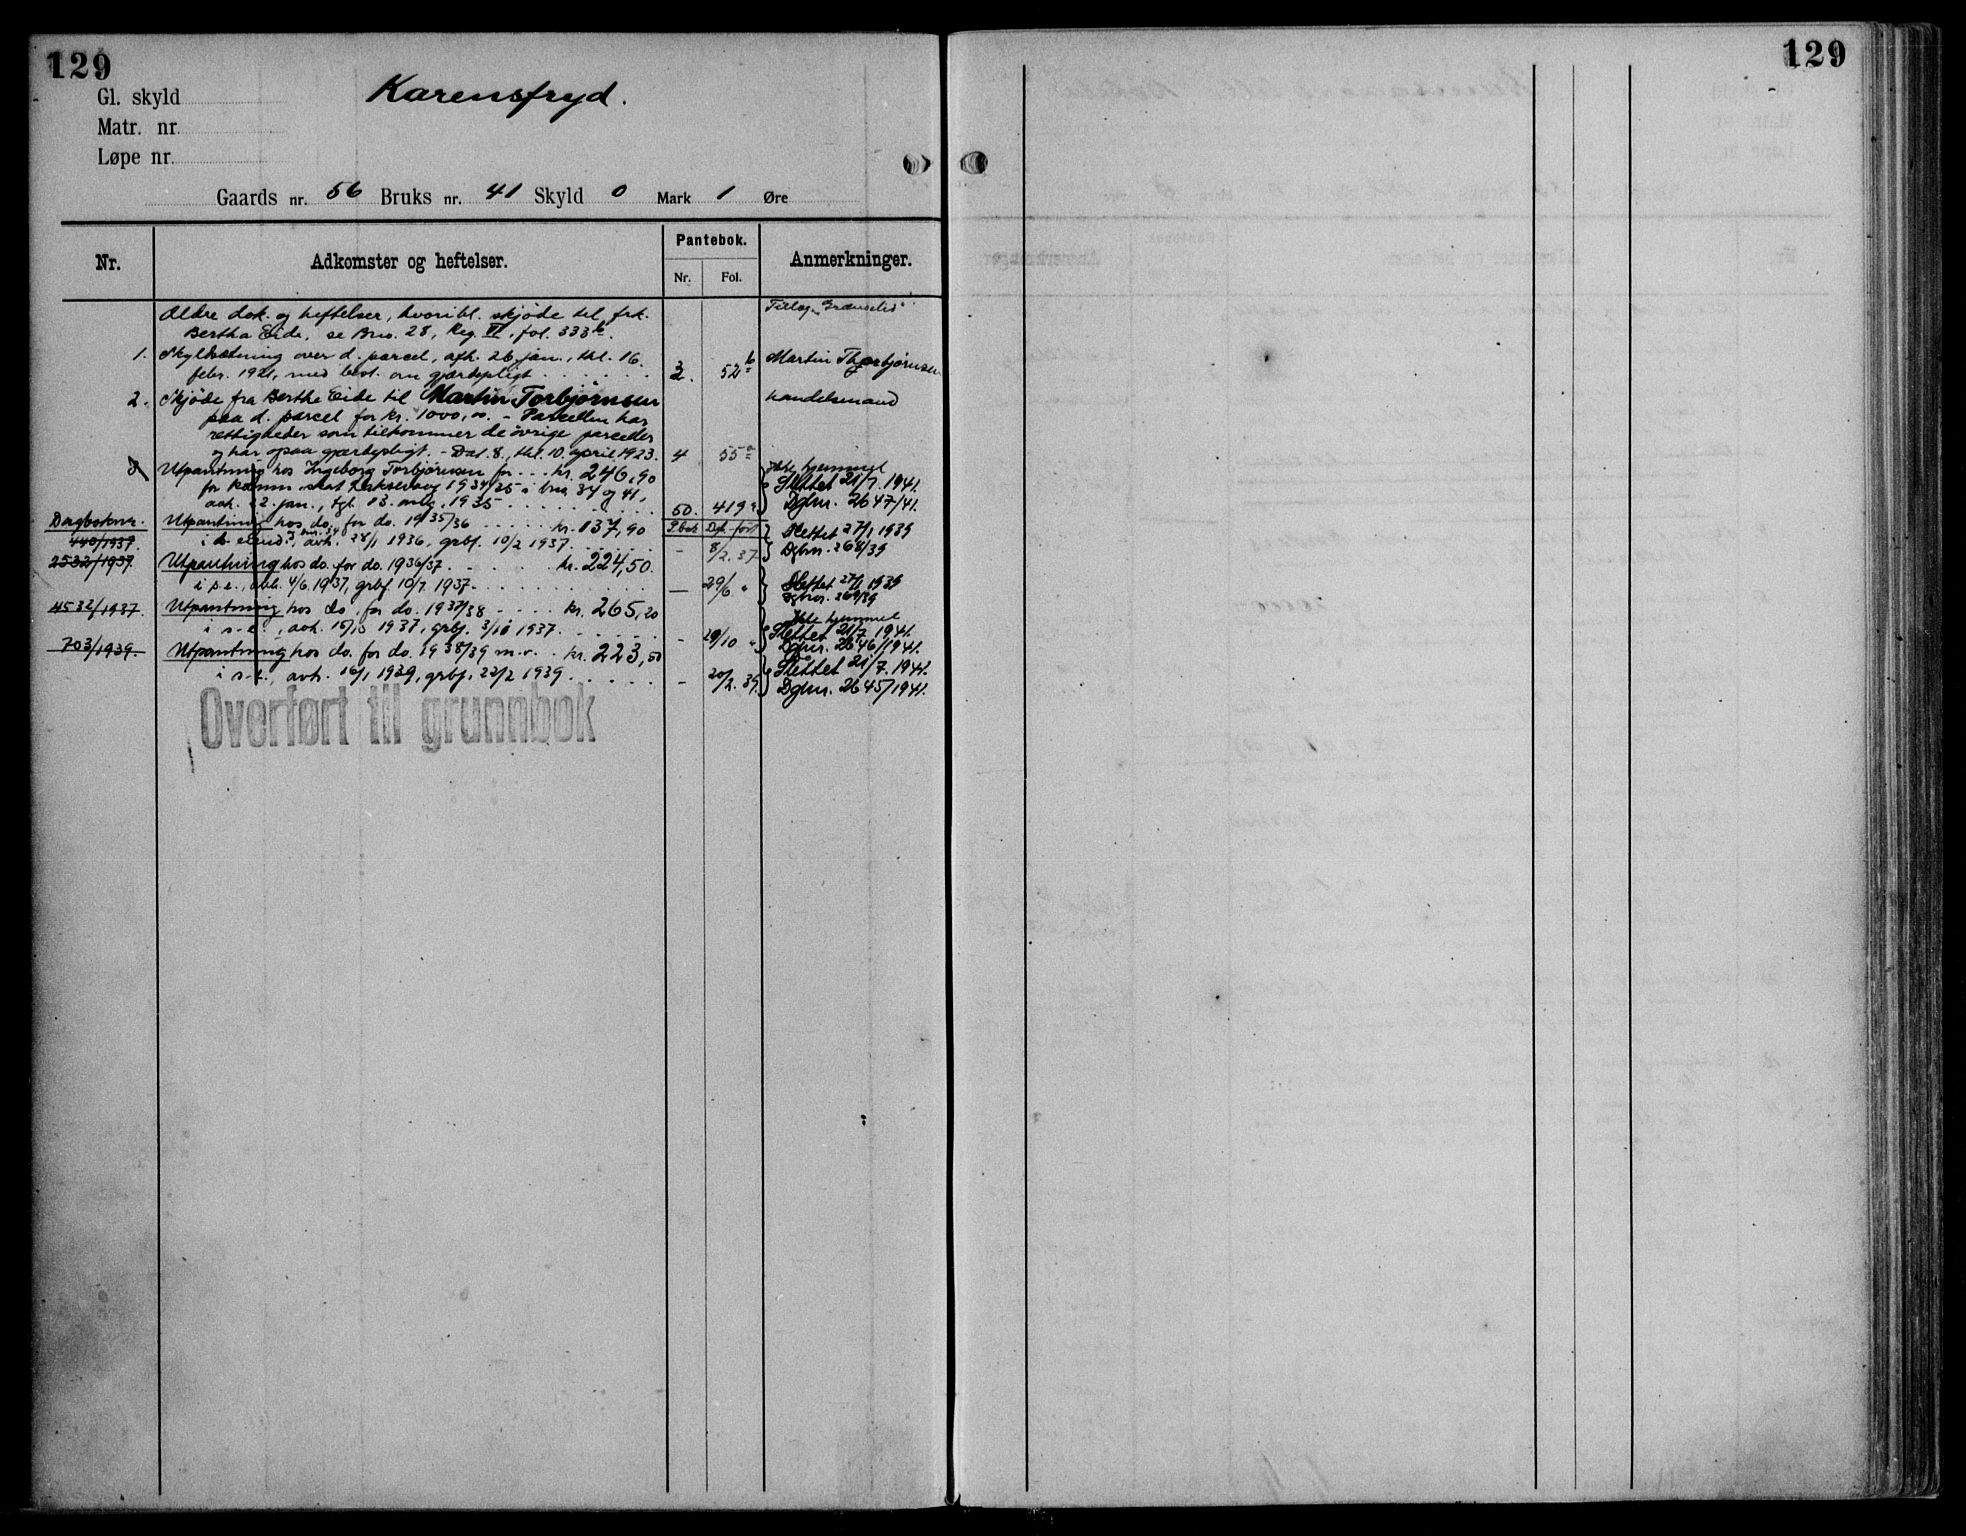 129
129
Karensfryd.
Gl. skyld
Matr. nr
Løpe nr.
Gaards nr. 56 Bruks nr. 41 Skyld 0 Mark 1 Øre
Nr. Adkomster og heftelser. Pantebok. Anmerkninger.
Nr. Fol.
Ældre dok. og heftelser, hvoribl. skjøde til frk.
Bertha Eide, se Bno. 28, Reg. VI, fol. 333b.
1. Skyldsætning over d. parcel, afh. 26 jan., thl. 16
febr. 1921, med best. om gjærdepligt 3. 52b Martin Thorbjørnsen
2. Skjøde fra Berthe Eide til Martin Torbjørnsen handelsmand
paa d. parcel for kr. 1000,00. - Parcellen har
rettigheder som tilkommer de øvrige parceller
og har ogsaa gjærdepligt. - Dat. 8., thl. 10. april 1923. 4 55a
3 Utpantning hos Ingeborg Torbjørnsen for ... kr. 246,90 Ikke hjemmel
for komm. skat Laksevaag 1934/35 i bno 34 og 41, Slettet 21/7. 1941.
avh. 12. jan., tgl. 13. aug. 1935 50. 419a Dgbnr. 2647/41.
Dagboksnr. Utpantning hos do. for do. 1935/36 kr. 137,90 P.bok Dok. ført Slettet 27/1 1939
440/1937. avh. 28/1 1936, grbf. 10/2 1937. - 8/2. 37 Dgbnr. 268/39
2532/1937. Utpantning hos do. for do. 1936/37 kr. 224,50.
i s.e., avh. 4/6 1937, grbf. 10/7 1937 - 29/6 " Slettet 27/1 1939
Dgbnr. 269/39
4532/1937. Utpantning hos do. for do. 1937/38 kr. 265,20 Ikke hjemmel
1937, grbf. 3/11 1937. - 29/10 " Slettet 21/7 1941.
Dgbnr. 2646/1941.
703/1939. Utpantning hos do. for do. 1938/39 m.v. kr. 223,50 Slettet 21/7. 1941.
i s.e., avh. 16/1 1939, grbf. 22/2 1939 - 20/2. 39. Dgbnr. 2645/1941.
Overført til grunnbok